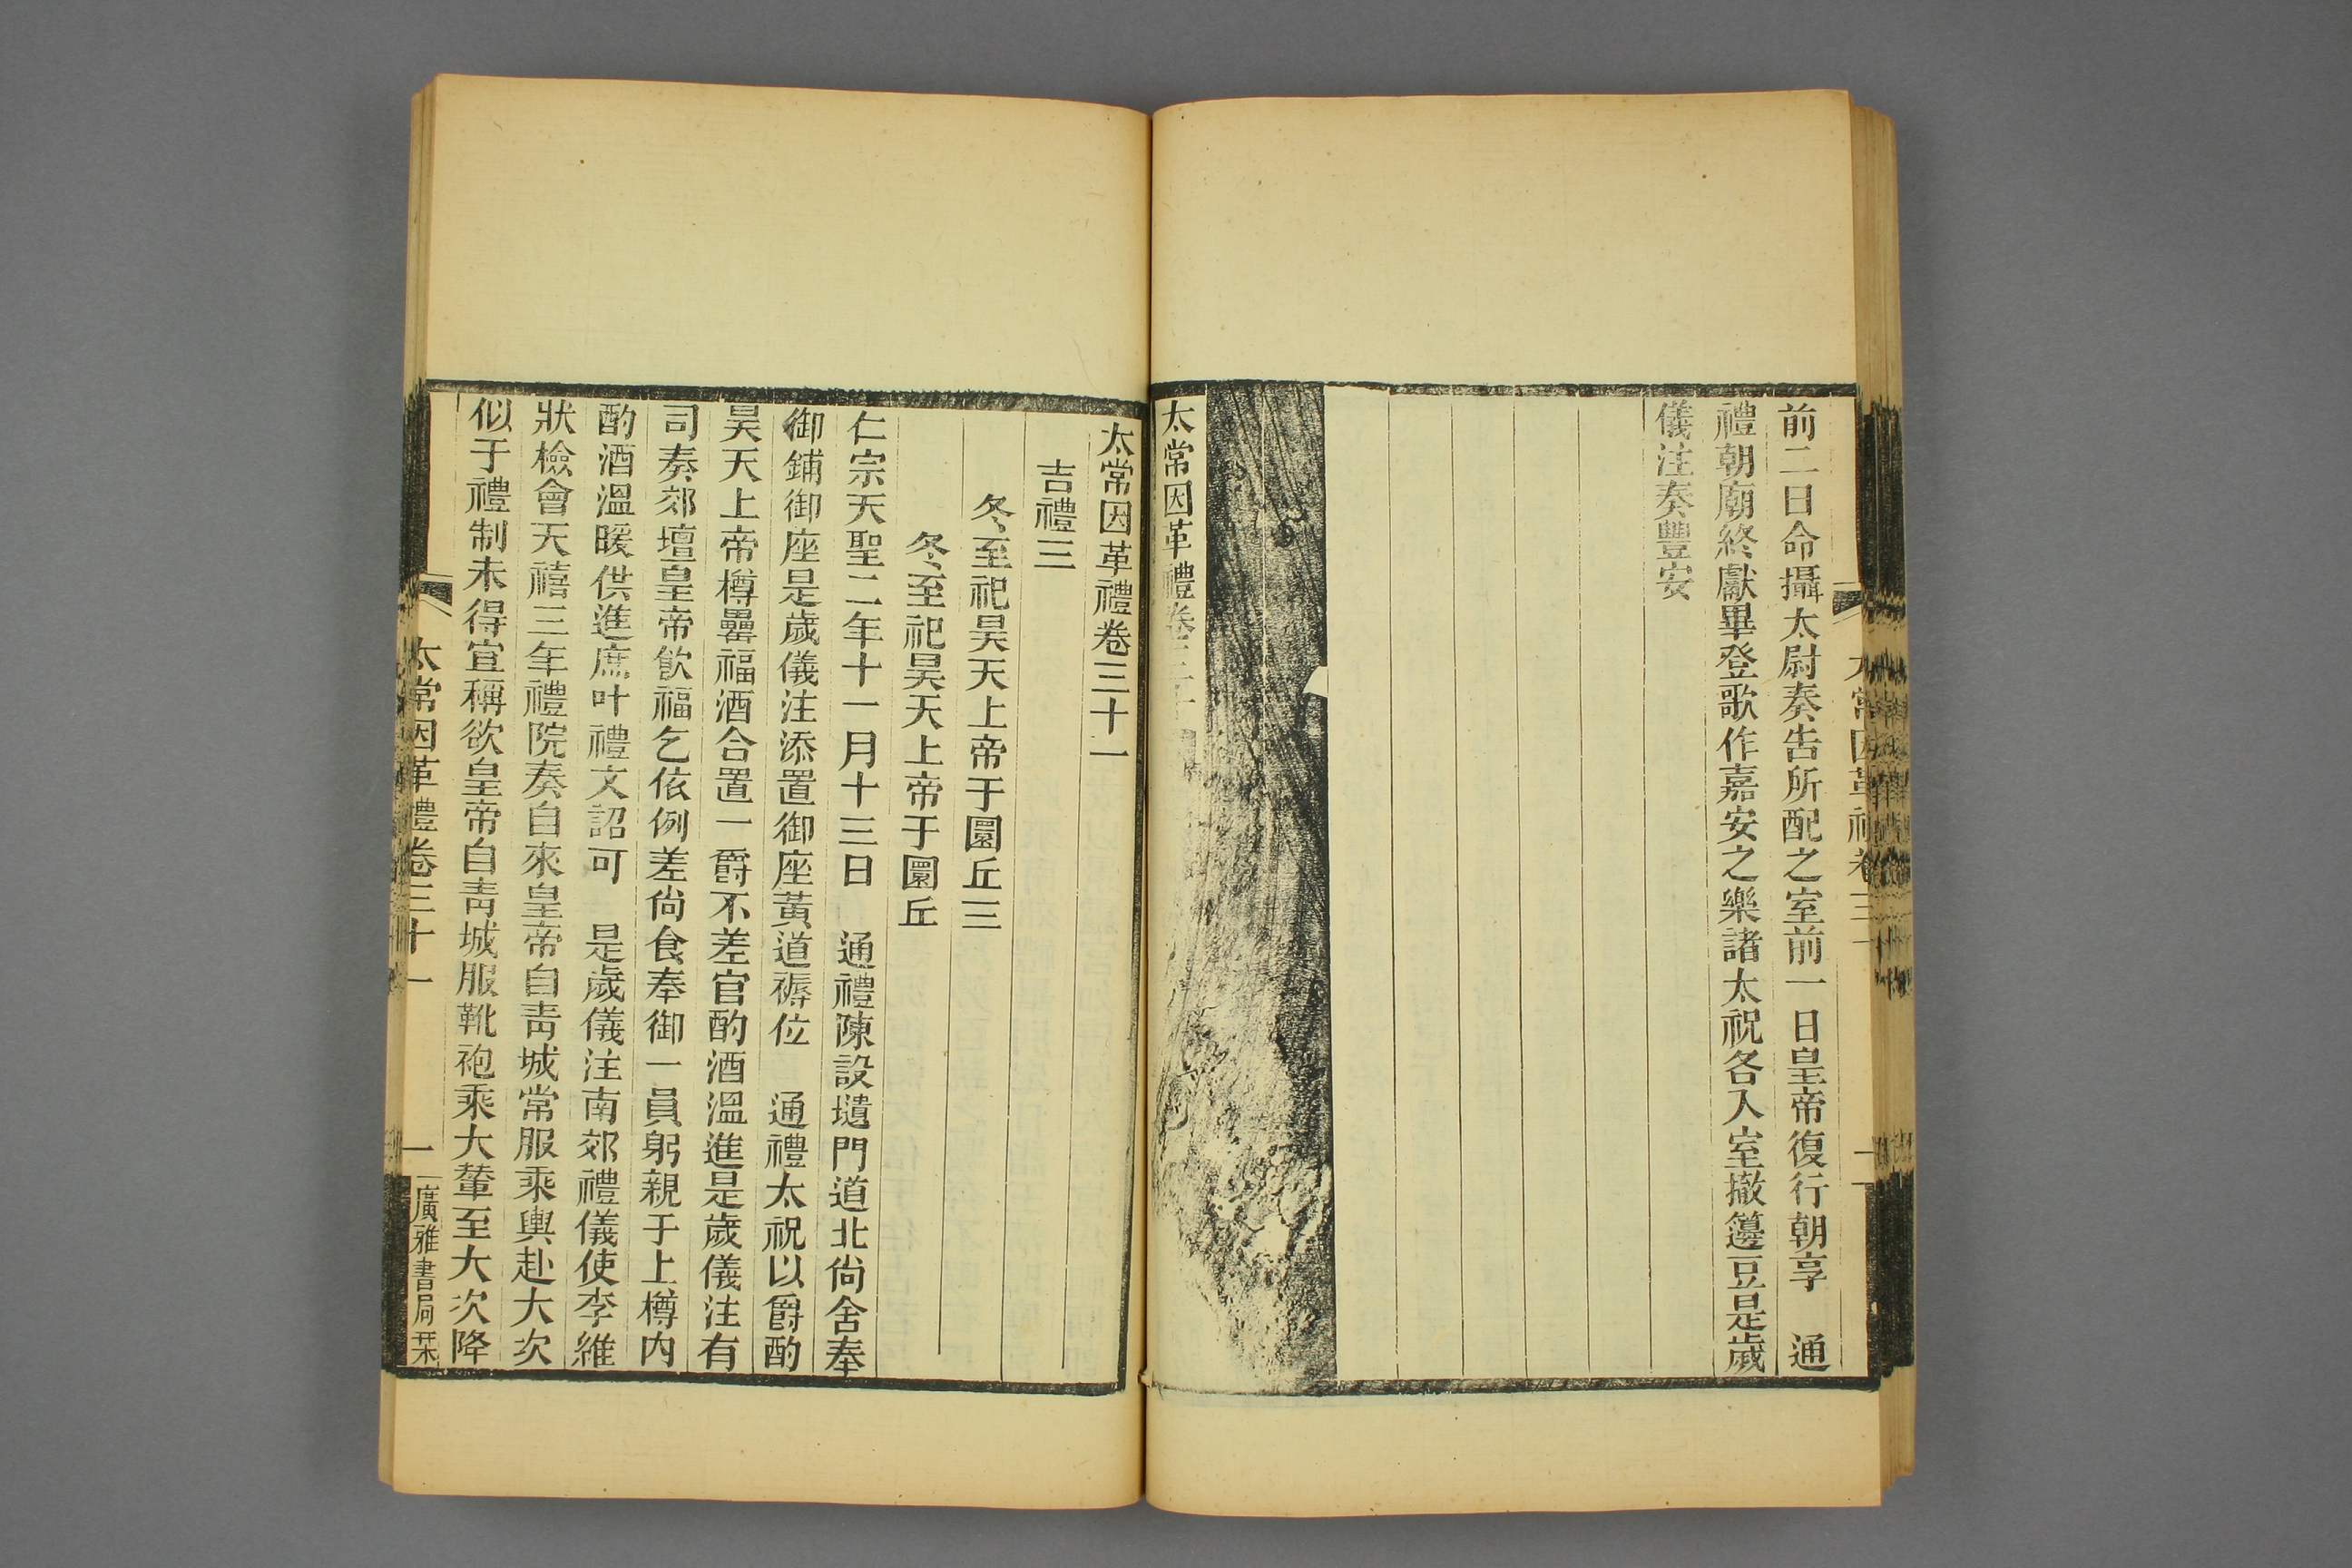 前二日命攝太尉奏告所配之室前一日皇帝復行朝享　通
禮朝廟終獻畢登歌作嘉安之樂諸太祝各入室撤籩豆是歲
儀注奏豐安
太常因革禮卷三十
太常因革禮卷三十一
吉禮三
冬至祀昊天上帝于圜丘三
冬至祀昊天上帝于圜丘
仁宗天聖二年十一月十三日　通禮陳設壝門道北尙舍奉
御鋪御座是歲儀注添置御座黃道褥位　通禮太祝以爵酌
昊天上帝樽罍福酒合置一爵不差官酌酒溫進是歲儀注有
司奏郊壇皇帝飮福乞依例差尙食奉御一員躬親于上樽內
酌酒溫暖供進庶叶禮文詔可　是歲儀注南郊禮儀使李維
狀檢會天禧三年禮院奏自來皇帝自靑城常服乘輿赴大次
似于禮制未得宜稱欲皇帝自靑城服靴袍乘大輦至大次降
太常因革禮卷三十一
一
廣雅書局栞